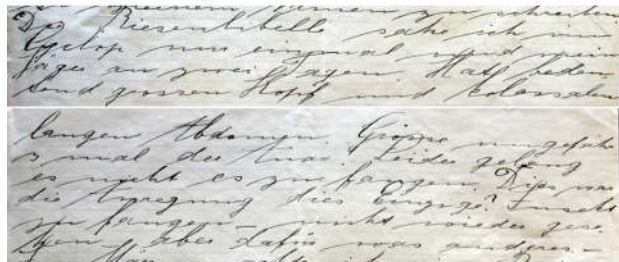 meinem Namen zu schreiben
Die Riesenlibelle sahe ich im
Cyclop nur einmal und mein
Jäger an zwei Tagen. Hat bedeu
tend grossen Kopf und kolossalen
langen Abdomen. Grösse ungefähr
3 mal der Leider gelang
es nicht es zu fangen. Dies war
die Anregung dies Einzige? Insekt
zu fangen – nicht wieder gese
hen – aber dafür was anderes –